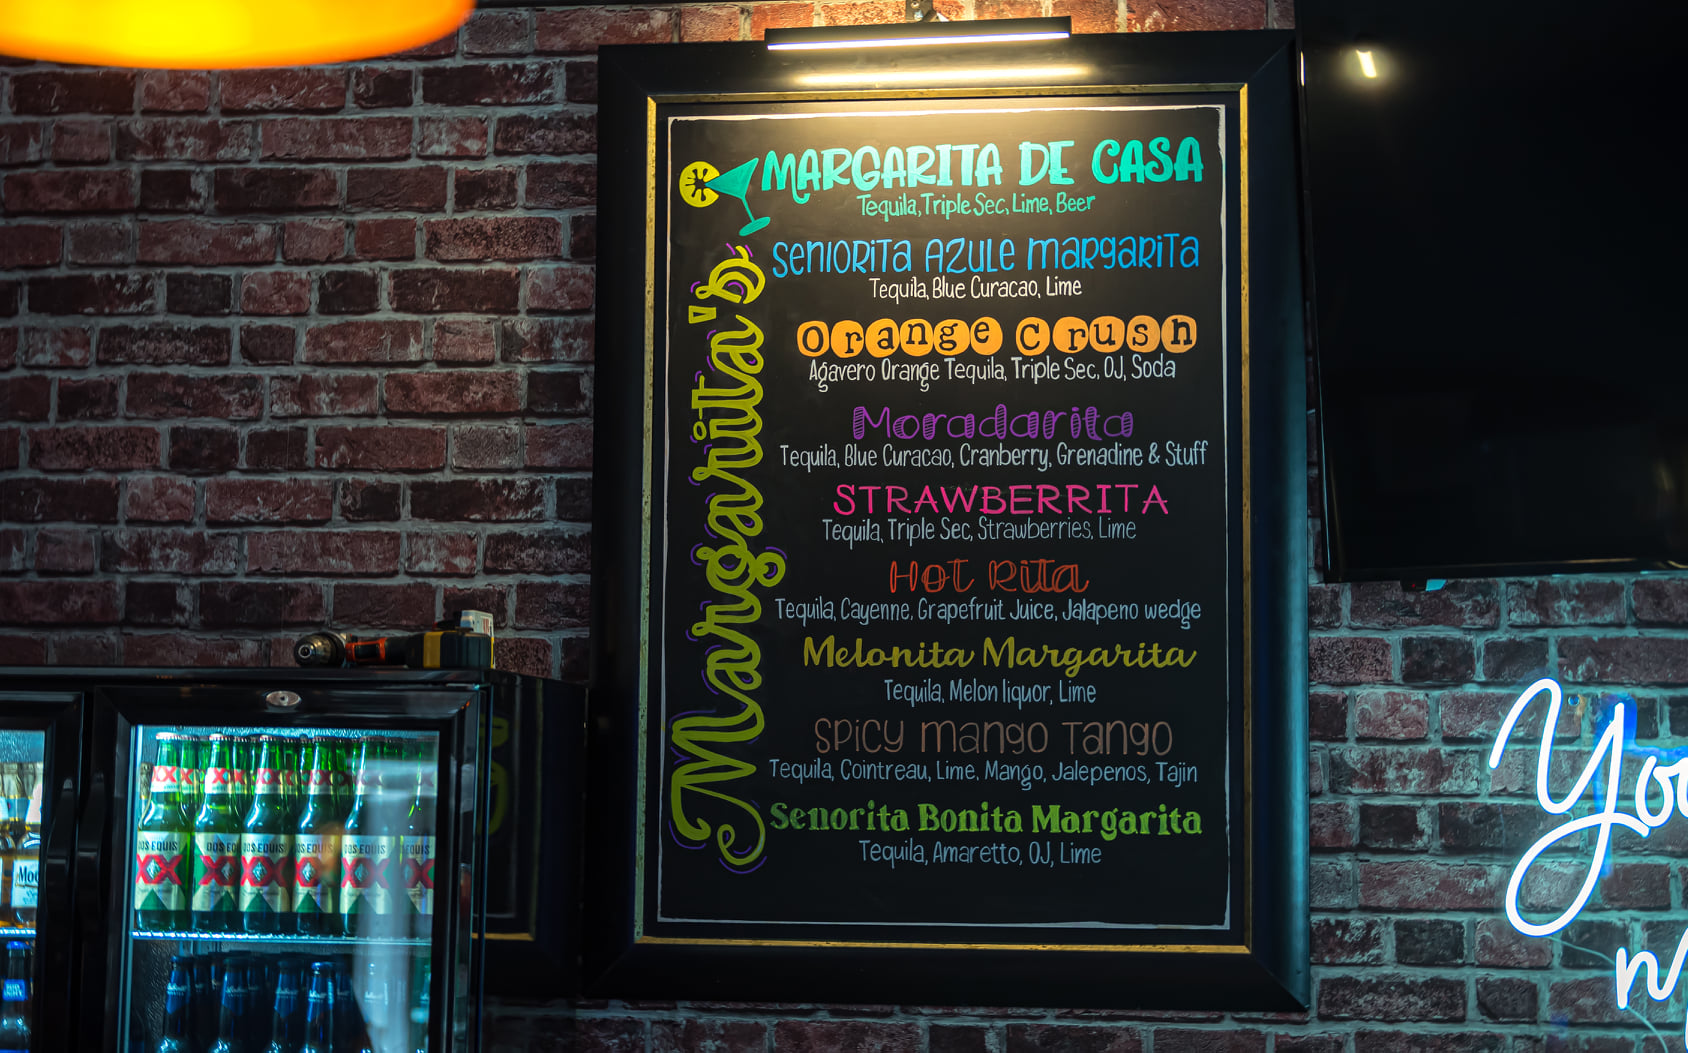 Margarita's
MARGARITA DE CASA
Tequila, Triple Sec, Lime, Beer
SENIORITA AZULE MARGARITA
Tequila, Blue Curacao, Lime
Orange Crush
Agavero Orange Tequila, Triple Sec, OJ, Soda
Moradarita
Tequila, Blue Curacao, Cranberry, Grenadine & Stuff
STRAWBERRITA
Tequila, Triple Sec, Strawberries, Lime
HOT Rita
Tequila, Cayenne, Grapefruit Juice, Jalapeno wedge
Melonita Margarita
Tequila, Melon liquor, Lime
SPICY MANGO TANGO
Tequila, Cointreau, Lime, Mango, Jalepenos, Tajin
Senorita Bonita Margarita
Tequila, Amaretto, OJ, Lime
XX XX XX XX XX
DOS EQUIS DOS EQUIS DOS EQUIS DOS EQUIS
XX XX XX XX XX XX